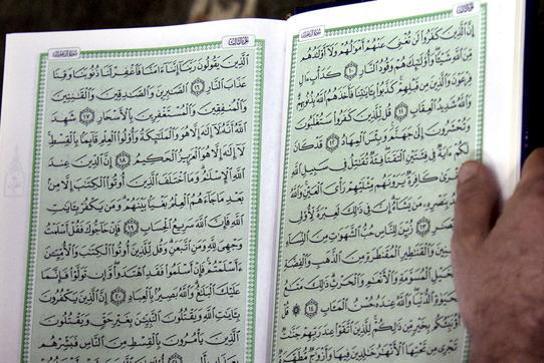 إِنَّ الَّذِينَ كَفَرُوا لَن تُغْنِيَ عَنْهُمْ أَمْوَٰلُهُمْ وَلَا أَوْلَٰدُهُم
مِّنَ اللَّهِ شَيْـًٔا وَأُولَٰئِكَ هُمْ وَقُودُ النَّارِ ١٠ كَدَأْبِ ءَالِ
فِرْعَوْنَ وَالَّذِينَ مِن قَبْلِهِمْ كَذَّبُوا بِـَٔايَٰتِنَا فَأَخَذَهُمُ اللَّهُ بِذُنُوبِهِمْ
وَاللَّهُ شَدِيدُ الْعِقَابِ ١١ قُل لِّلَّذِينَ كَفَرُوا سَتُغْلَبُونَ
وَتُحْشَرُونَ إِلَىٰ جَهَنَّمَ وَبِئْسَ الْمِهَادُ ١٢ قَدْ كَانَ
لَكُمْ ءَايَةٌ فِي فِئَتَيْنِ الْتَقَتَا فِئَةٌ تُقَٰتِلُ فِي سَبِيلِ اللَّهِ
وَأُخْرَىٰ كَافِرَةٌ يَرَوْنَهُم مِّثْلَيْهِمْ رَأْيَ الْعَيْنِ وَاللَّهُ
يُؤَيِّدُ بِنَصْرِهِ مَن يَشَاءُ إِنَّ فِي ذَٰلِكَ لَعِبْرَةً لِّأُولِي
زُيِّنَ لِلنَّاسِ حُبُّ الشَّهَوَٰتِ مِنَ النِّسَاءِ
وَالْقَنَٰطِيرِ الْمُقَنطَرَةِ مِنَ الذَّهَبِ وَالْفِضَّةِ
وَالْخَيْلِ الْمُسَوَّمَةِ وَالْأَنْعَٰمِ وَالْحَرْثِ ذَٰلِكَ مَتَٰعُ
الْحَيَوٰةِ الدُّنْيَا وَاللَّهُ عِندَهُ حُسْنُ الْمَـَٔابِ ١٤ قُلْ
أَؤُنَبِّئُكُم بِخَيْرٍ مِّن ذَٰلِكُمْ لِلَّذِينَ اتَّقَوْا عِندَ رَبِّهِمْ جَنَّٰتٌ
تَجْرِي مِن تَحْتِهَا الْأَنْهَٰرُ خَٰلِدِينَ فِيهَا وَأَزْوَٰجٌ مُّطَهَّرَةٌ
الَّذِينَ يَقُولُونَ رَبَّنَا إِنَّنَا ءَامَنَّا فَاغْفِرْ لَنَا ذُنُوبَنَا وَقِنَا
عَذَابَ النَّارِ ١٦ الصَّٰبِرِينَ وَالصَّٰدِقِينَ وَالْقَٰنِتِينَ
وَالْمُنفِقِينَ وَالْمُسْتَغْفِرِينَ بِالْأَسْحَارِ ١٧ شَهِدَ
اللَّهُ أَنَّهُ لَا إِلَٰهَ إِلَّا هُوَ وَالْمَلَٰئِكَةُ وَأُولُوا الْعِلْمِ قَائِمًا بِالْقِسْطِ
لَا إِلَٰهَ إِلَّا هُوَ الْعَزِيزُ الْحَكِيمُ ١٨ إِنَّ الدِّينَ عِندَ
اللَّهِ الْإِسْلَٰمُ وَمَا اخْتَلَفَ الَّذِينَ أُوتُوا الْكِتَٰبَ إِلَّا مِن
بَعْدِ مَا جَاءَهُمُ الْعِلْمُ بَغْيًا بَيْنَهُمْ وَمَن يَكْفُرْ بِـَٔايَٰتِ
اللَّهِ فَإِنَّ اللَّهَ سَرِيعُ الْحِسَابِ ١٩ فَإِنْ حَاجُّوكَ فَقُلْ أَسْلَمْتُ
وَجْهِيَ لِلَّهِ وَمَنِ اتَّبَعَنِ وَقُل لِّلَّذِينَ أُوتُوا الْكِتَٰبَ وَالْأُمِّيِّـۧنَ
ءَأَسْلَمْتُمْ فَإِنْ أَسْلَمُوا فَقَدِ اهْتَدَوا وَّإِن تَوَلَّوْا فَإِنَّمَا
عَلَيْكَ الْبَلَٰغُ وَاللَّهُ بَصِيرٌ بِالْعِبَادِ ٢٠ إِنَّ الَّذِينَ يَكْفُرُونَ
بِـَٔايَٰتِ اللَّهِ وَيَقْتُلُونَ النَّبِيِّـۧنَ بِغَيْرِ حَقٍّ وَيَقْتُلُونَ
الَّذِينَ يَأْمُرُونَ بِالْقِسْطِ مِنَ النَّاسِ فَبَشِّرْهُم